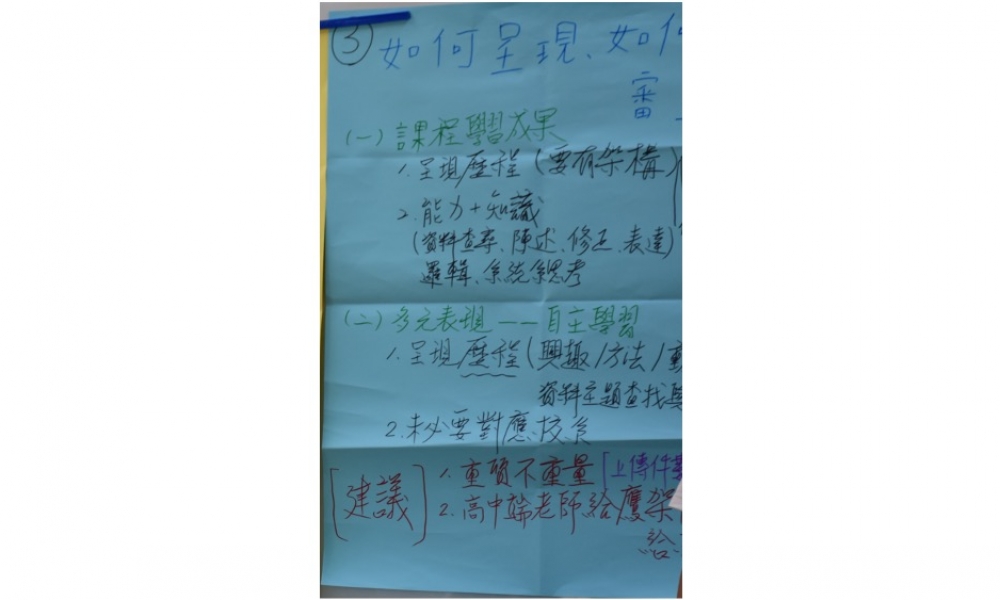 ③ 如何呈現、如何
審
(一) 課程學習成果
1. 呈現歷程 (要有架構)
2. 能力+知識
(資料查案、陳述、修正、表達)
邏輯、系統思考
(二) 多元表現——自主學習
1. 呈現歷程 (興趣/方法/動
資料主題查找與
2. 未必要對應校系
[建議] 1. 重質不重量 [上傳件數
2. 高中端老師給鷹架
給